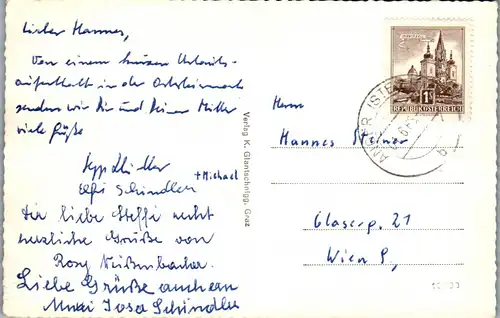 Lieber Hannes,
Von einem kurzen Urlaubs-
aufenthalt in der Oststeiermark
senden wir Dir und Deiner Mutter
viele Grüße
Schindler
Elfi Schindler
+ Michael
Dir liebe Steffi recht
herzliche Grüße von
Rosy Nußenbacher.
Liebe Grüße auch von
Josa Schindler
Verlag K. Glantschnigg, Graz
REPUBLIK ÖSTERREICH
1 S
ANGER
Herrn
Hannes Steiner
Glaserg. 21
Wien 9,